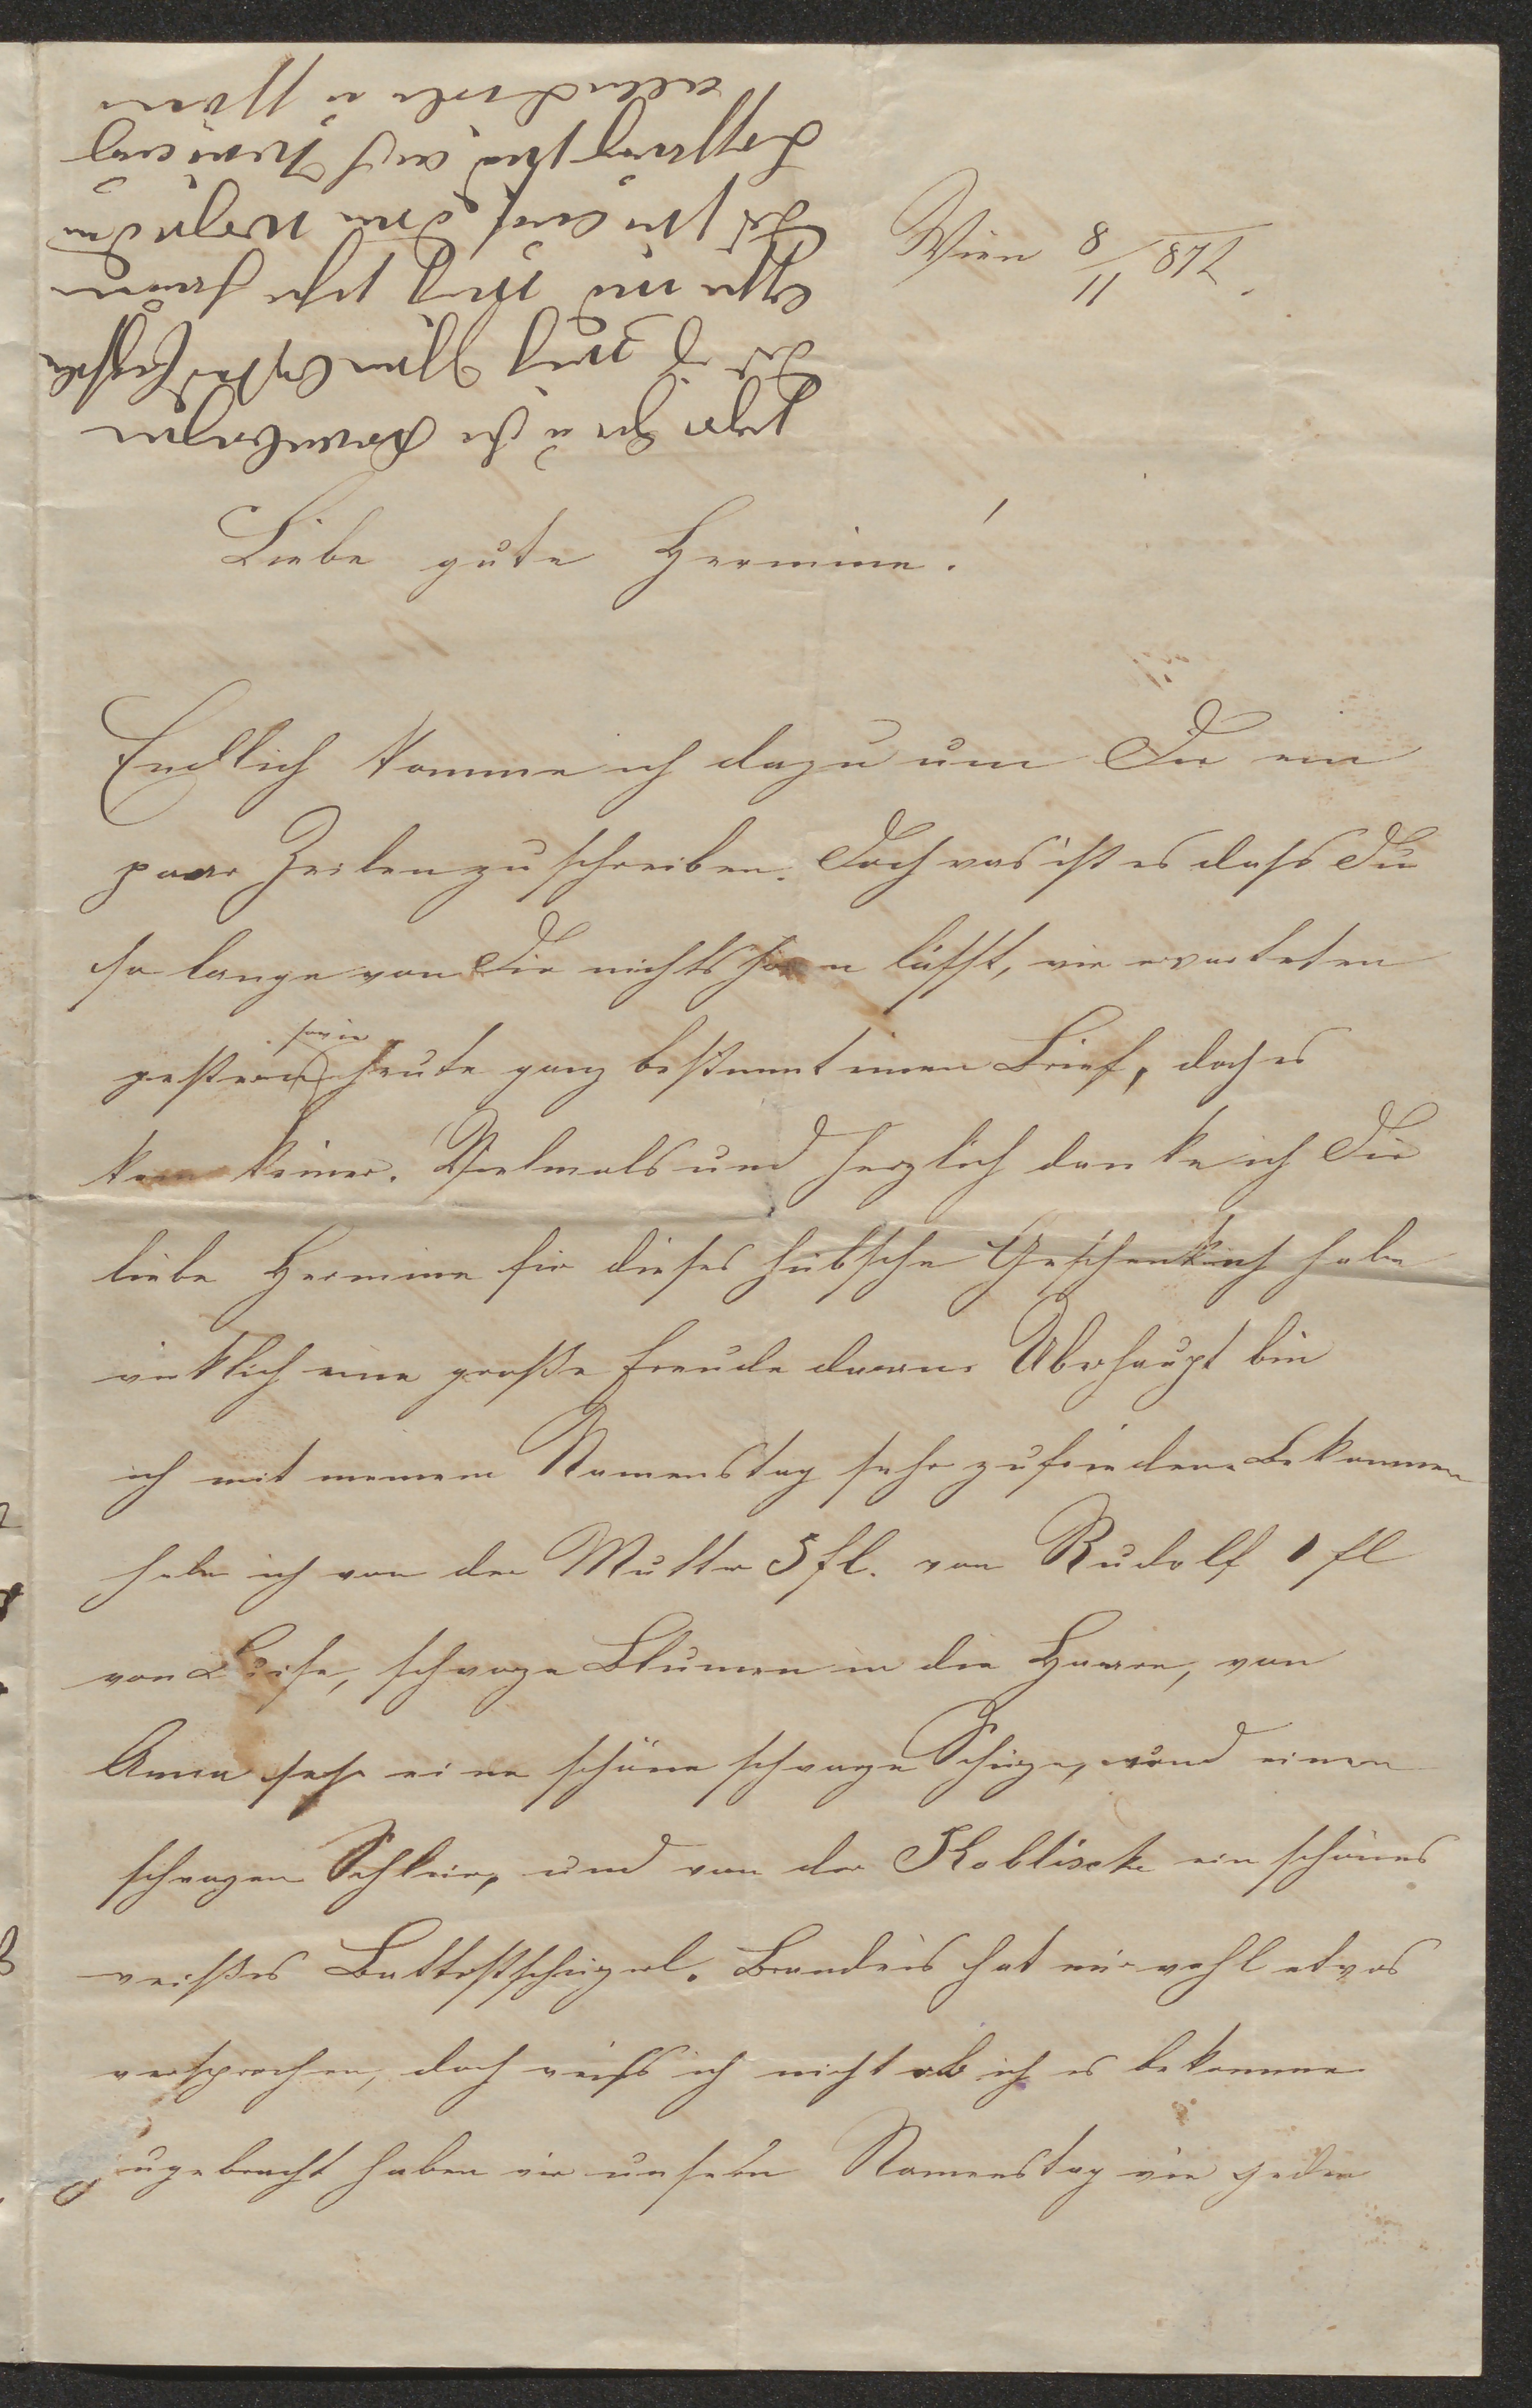 Wien 8/11 872.
Liebe gute Hermine!
Endlich komme ich dazu um Dir ein
paar Zeilen zu schreiben. Doch was ist es dass Du
so lange von Dir nichts hören läßt, wir erwarteten
gestern sowie heute ganz bestimmt einen Brief, doch es
kam keiner. Vielmals und herzlich danke ich Dir
liebe Hermine für dieses hübsche Geschenk ich habe
wirklich eine große Freude daran. Überhaupt bin
ich mit meinem Namenstag sehr zufrieden. Bekommen
habe ich von der Mutter 5 fl. von Rudolf 1 fl
von Luise, schwarze Blumen in die Haare, von
Anna sehr eine schöne schwarze Schürze, und einen
schwarzen Schleier, und von der Koblischke ein schönes
weißes Battistschürzerl. Brandeis hat mir wohl etwas
versprochen, doch weiß ich nicht ob ich es bekomme
zugebracht haben wir unseren Namenstag wie jeden